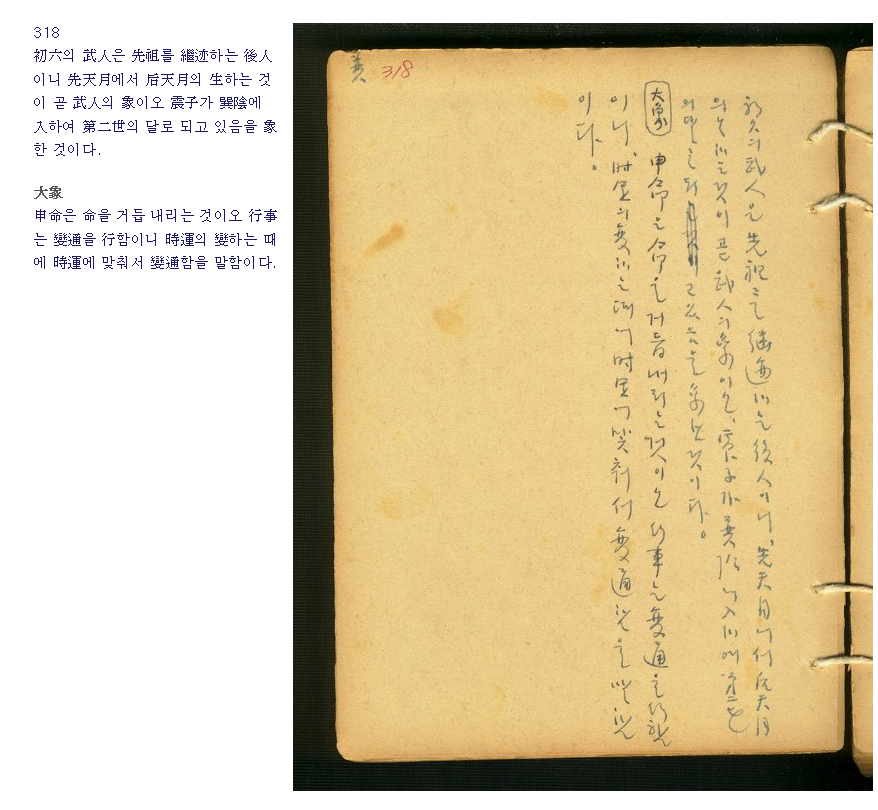 318
初六의 武人은 先祖를 繼迹하는 後人
이니 先天月에서 后天月의 生하는 것
이 곧 武人의 象이오 震子가 巽陰에
入하여 第二世의 달로 되고 있음을 象
한 것이다.
大象
申命은 命을 거듭 내리는 것이오 行事
는 變通을 行함이니 時運의 變하는 때
에 時運에 맞춰서 變通함을 말함이다.
巽 318
初六의 武人은 先祖를 繼迹하는 後人이니, 先天月에서 后天月
의 生하는 것이 곧 武人의 象이오, 震子가 巽陰에 入하여 第二世
의 달로 되고 있음을 象한 것이다.
大象 申命은 命을 거듭 내리는 것이오 行事는 變通을 行함
이니 時運의 變하는 때에 時運에 맞춰서 變通함을 말함
이다.